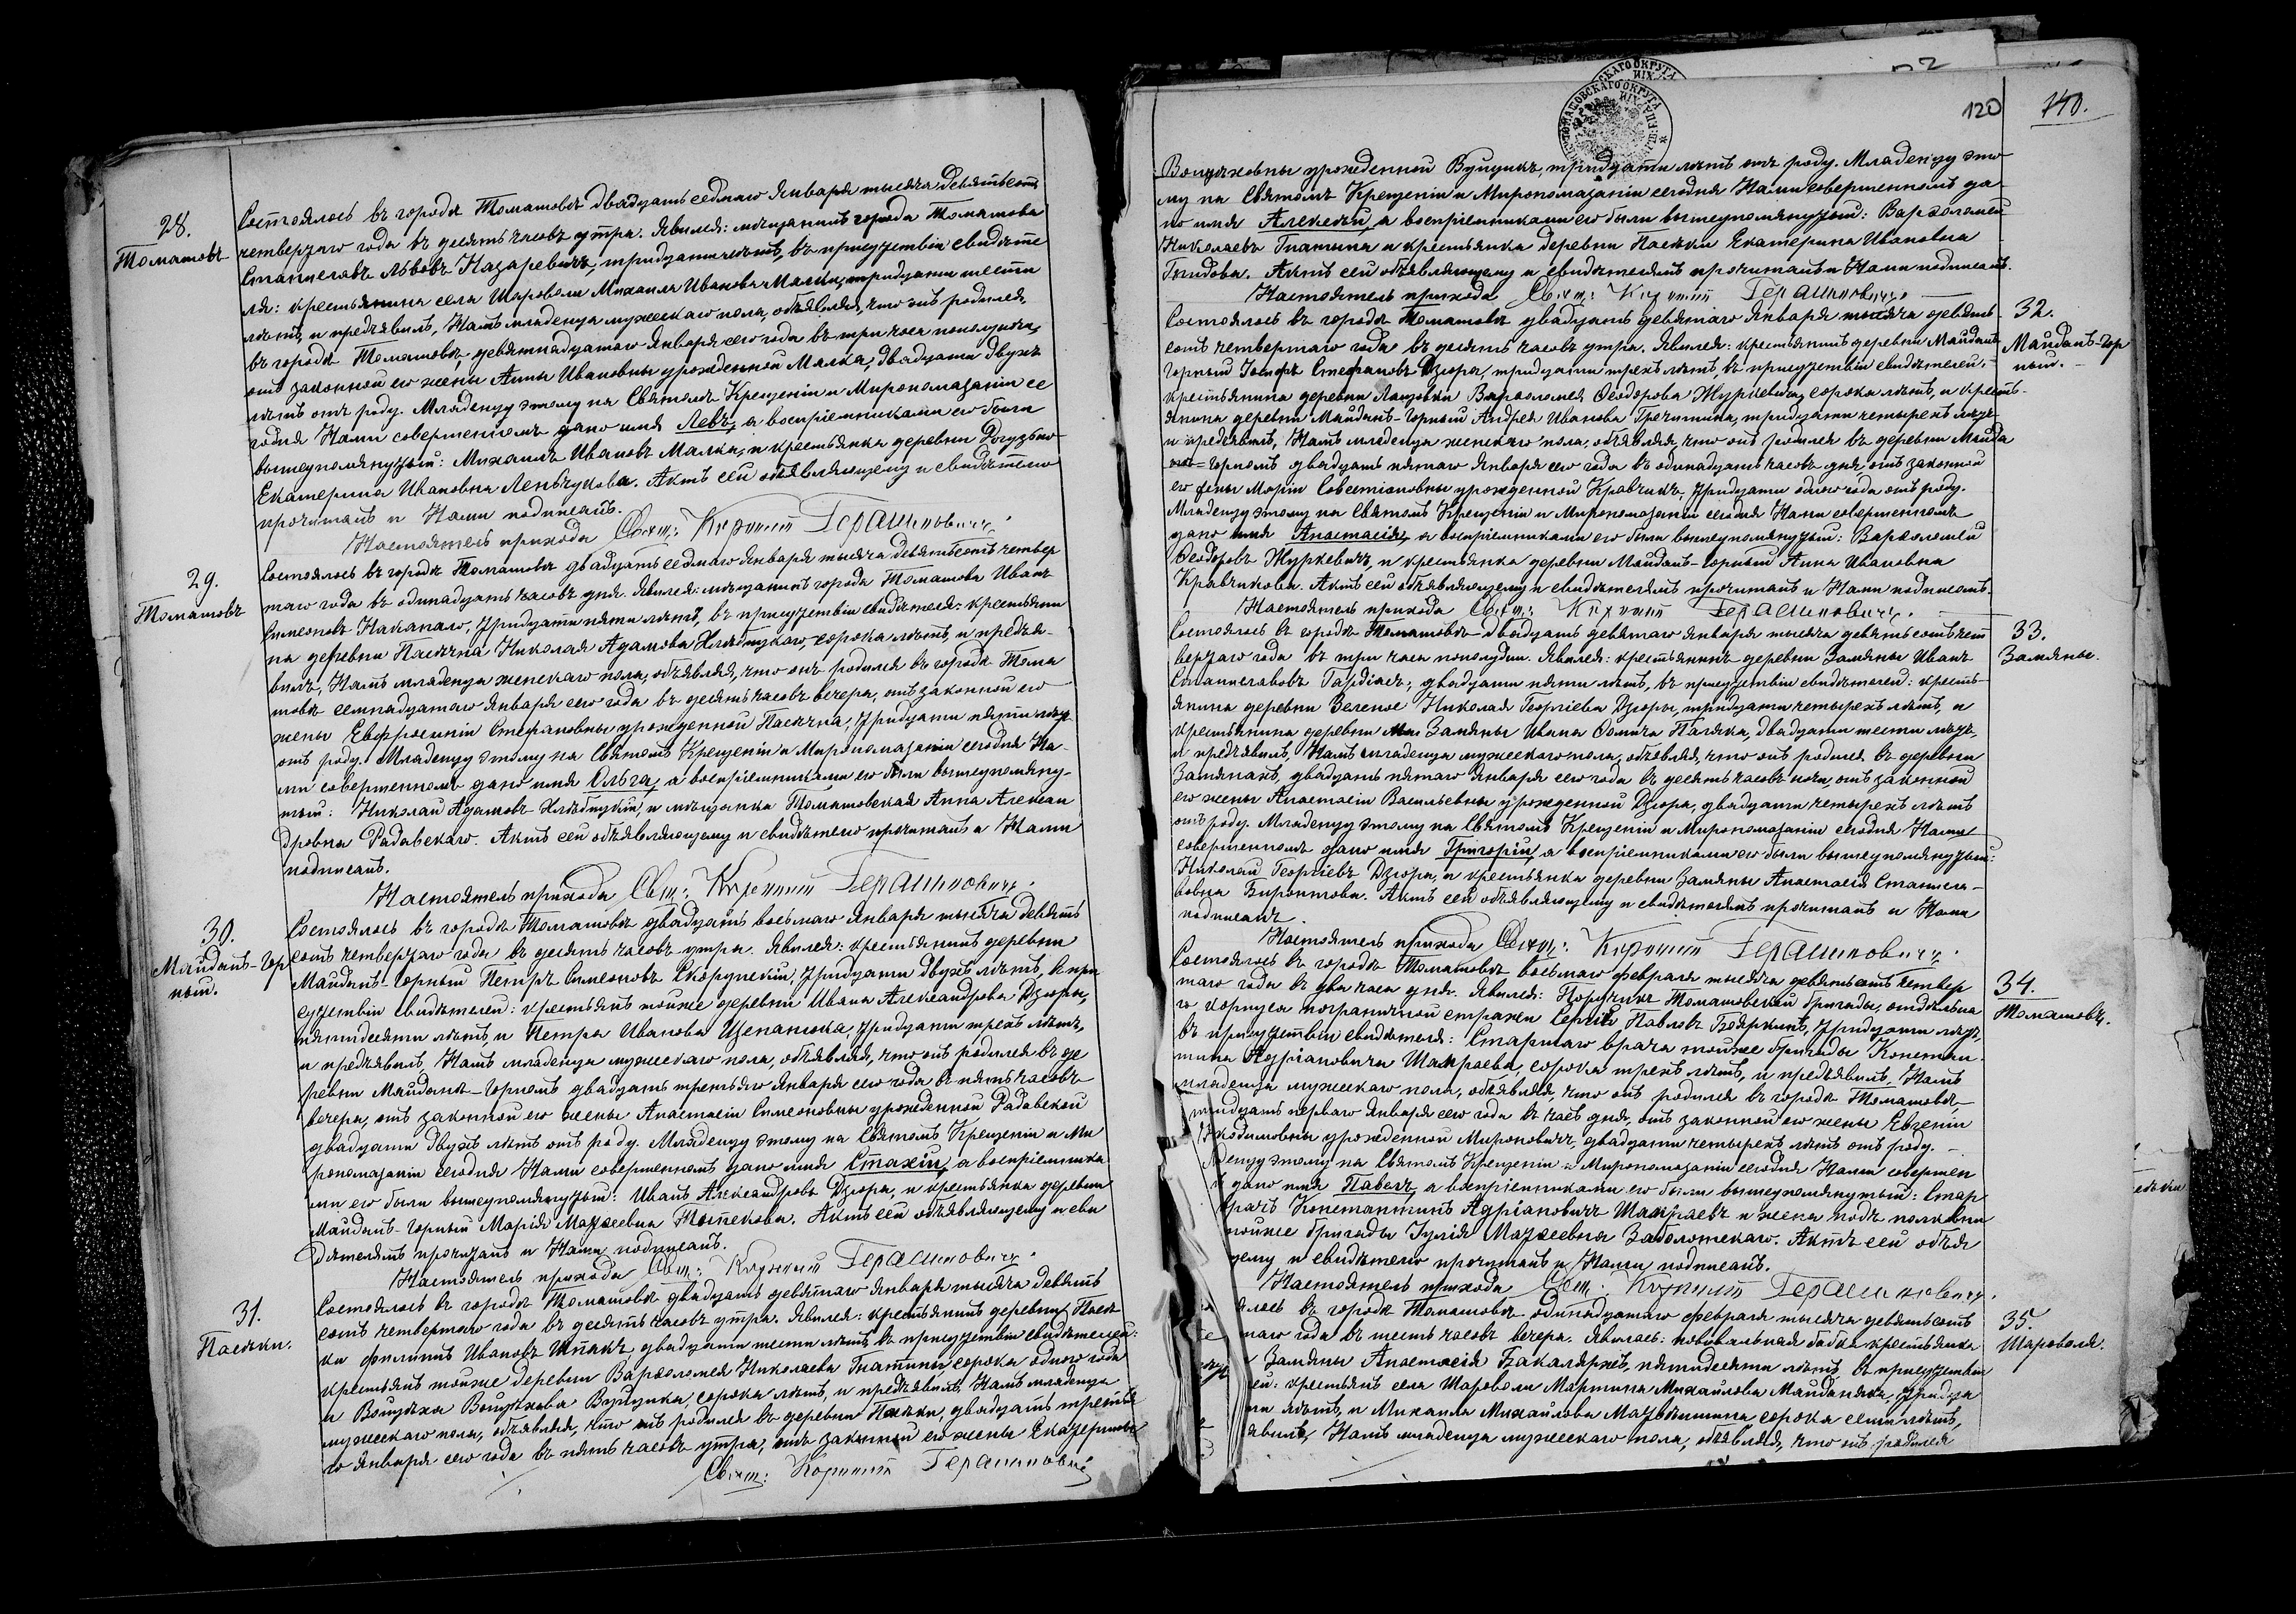 28.
Томашовъ
Состоялось въ городѣ Томашовѣ двадцать седмаго Января тысяча девятьсотъ
четвертаго года въ десять часовъ утра. Явился: мѣщанинъ города Томашова
Станиславъ Львовъ Назаревичъ, тридцати лѣтъ, въ присутствіи свидѣте
ля: крестьянина села Шароволи Михаила Иванова Малки, тридцати шести
лѣтъ, и предъявилъ, Намъ младенца мужескаго пола, объявляя, что онъ родился
въ городѣ Томашовѣ, девятнадцатаго Января сего года въ три часа пополудни,
отъ законной его жены Анны Ивановны урожденной Малка, двадцати двухъ
лѣтъ отъ роду. Младенцу этому на Святомъ Крещеніи и Миропомазаніи се
годня Нами совершенномъ дано имя Левъ, а воспріемниками его были
вышеупомянутый: Михаилъ Ивановъ Малка, и крестьянка деревни
Екатерина Ивановна Ленчукова. Актъ сей объявляющему и свидѣтелю
прочитанъ и Нами подписанъ.
Настоятель прихода Свящ: Герашиновичъ.
29.
Томашовъ
Состоялось въ городѣ Томашовѣ двадцать седмаго Января тысяча девятьсотъ четвер
таго года въ одинадцать часовъ дня. Явился: мѣщанинъ города Томашова Иванъ
Симеоновъ Накапало, тридцати пяти лѣтъ, въ присутствіи свидѣтеля: крестьяни
на деревни Пасѣчна Николая Адамова Хлѣбицкаго, сорока лѣтъ, и предъя-
вилъ, Намъ младенца женскаго пола, объявляя, что онъ родился въ городѣ Тома
шовѣ семнадцатаго Января сего года въ десять часовъ вечера, отъ законной его
жены Евфросиніи Стефановны урожденной Пасѣчна, тридцати пяти лѣтъ
отъ роду. Младенцу этому на Святомъ Крещеніи и Миропомазаніи сегодня На-
ми совершенномъ дано имя Ольга, а воспріемниками его были вышеупомяну-
тый: Николай Адамовъ Хлѣбицкій, и мѣщанка Томашовская Анна Алексан
дровна Радавскаго. Актъ сей объявляющему и свидѣтелю прочитанъ и Нами
подписанъ.
Настоятель прихода Свящ: Герашиновичъ.
30.
Майданъ-Гор
ный.
Состоялось въ городѣ Томашовѣ двадцать восьмаго Января тысяча девять
сотъ четвертаго года въ десять часовъ утра. Явился: крестьянинъ деревни
Майданъ-Горный Петръ Симеоновъ Скорупскій, тридцати двухъ лѣтъ, въ при
сутствіи свидѣтелей: крестьянъ тойже деревни Ивана Александрова Дзюры,
пятидесяти лѣтъ, и Петра Иванова Щепанюка, тридцати трехъ лѣтъ,
и предъявилъ, Намъ младенца мужескаго пола, объявляя, что онъ родился въ де
ревни Майданѣ-Горномъ двадцать третьяго Января сего года въ пять часовъ
вечера, отъ законной его жены Анастасіи Симеоновны урожденной Радавской
двадцати двухъ лѣтъ отъ роду. Младенцу этому на Святомъ Крещеніи и Ми
ропомазаніи сегодня Нами совершенномъ дано имя Стахій, а воспріемника
ми его были вышеупомянутый: Иванъ Александровъ Дзюра, и крестьянка деревни
Майданъ-Горный Марія Матѳеевна. Актъ сей объявляющему и сви
дѣтелямъ прочитанъ и Нами подписанъ.
Настоятель прихода Свящ: Герашиновичъ.
31.
Пасѣки.
Состоялось въ городѣ Томашовѣ двадцать девятаго Января тысяча девять
сотъ четвертаго года въ десять часовъ утра. Явился: крестьянинъ деревни Пасѣ
ки Филиппъ Ивановъ Шпакъ, двадцати шести лѣтъ, въ присутствіи свидѣтелей:
крестьянъ тойже деревни Варѳоломея Николаева Гнатины, сорока одного года
и Войцѣха Войцѣхова Вуйцика, сорока лѣтъ, и предъявилъ, Намъ младенца
мужескаго пола, объявляя, что онъ родился въ деревни Пасѣки, двадцать третья
го Января сего года въ пять часовъ утра, отъ законной его жены Екатерины
Свящ: Герашиновичъ
120
140.
Войцѣховны урожденной Вуйцикъ, тридцати лѣтъ отъ роду. Младенцу это-
му на Святомъ Крещеніи и Миропомазаніи сегодня Нами совершенномъ да-
но имя Алексѣй, а воспріемниками его были вышеупомянутый: Варѳоломей
Николаевъ Гнатина и крестьянка деревни Пасѣки Екатерина Ивановна
Гнидова. Актъ сей объявляющему и свидѣтелямъ прочитанъ и Нами подписанъ.
Настоятель прихода Свящ: Герашиновичъ.
32.
Майданъ-Гор
ный.
Состоялось въ городѣ Томашовѣ двадцать девятаго Января тысяча девять
сотъ четвертаго года въ десять часовъ утра. Явился: крестьянинъ деревни Майданъ-
Горный Іосифъ Стефановъ Дзюра, тридцати трехъ лѣтъ, въ присутствіи свидѣтелей:
крестьянина деревни Варѳоломея Ѳеодорова Журкевича, сорока лѣтъ, и кресть-
янина деревни Майданъ-Горный Андрея Иванова, тридцати четырехъ лѣтъ,
и предъявилъ, Намъ младенца женскаго пола, объявляя, что онъ родился въ деревни Майда
нѣ-Горномъ двадцать пятаго Января сего года въ одинадцать часовъ дня, отъ законной
его жены Маріи Севастіановны урожденной Кравчикъ, тридцати одного года отъ роду.
Младенцу этому на Святомъ Крещеніи и Миропомазаніи сегодня Нами совершенномъ
дано имя Анастасія, а воспріемниками его были вышеупомянутый: Варѳоломей
Ѳеодоровъ Журкевичъ, и крестьянка деревни Майданъ-Горный Анна Ивановна
Кравчикова. Актъ сей объявляющему и свидѣтелямъ прочитанъ и Нами подписанъ.
Настоятель прихода Свящ: Герашиновичъ.
33.
Замяны.
Состоялось въ городѣ Томашовѣ двадцать девятаго Января тысяча девятьсотъ чет
вертаго года въ три часа пополудни. Явился: крестьянинъ деревни Замяны Иванъ
Станиславовъ Гардіасъ, двадцати пяти лѣтъ, въ присутствіи свидѣтелей: кресть-
янина деревни Зеленое Николая Георгіева Дзюры, тридцати четырехъ лѣтъ, и
крестьянина деревни Замяны Ивана Ѳомича Паляка, двадцати шести лѣтъ,
и предъявилъ, Намъ младенца мужескаго пола, объявляя, что онъ родился въ деревни
Замянахъ, двадцать пятаго Января сего года въ десять часовъ ночи, отъ законной
его жены Анастасіи Васильевны урожденной Дзюра, двадцати четырехъ лѣтъ
отъ роду. Младенцу этому на Святомъ Крещеніи и Миропомазаніи сегодня Нами
совершенномъ дано имя Григорій, а воспріемниками его были вышеупомянутый:
Николай Георгіевъ Дзюра, и крестьянка деревни Замяны Анастасія Станисла-
вовна. Актъ сей объявляющему и свидѣтелямъ прочитанъ и Нами
подписанъ.
Настоятель прихода Свящ: Герашиновичъ.
34.
Томашовъ.
Состоялось въ городѣ Томашовѣ восьмаго февраля тысяча девятьсотъ четвер
таго года въ два часа дня. Явился: Поручикъ Томашовской бригады, отдѣльна
го корпуса пограничной стражи Сергій Павловъ Бояркинъ, тридцати лѣтъ,
въ присутствіи свидѣтеля: Старшаго врача тойже бригады Констан-
тина Адріановича Шапраева, сорока трехъ лѣтъ, и предъявилъ Намъ
младенца мужескаго пола, объявляя, что онъ родился въ городѣ Томашовѣ,
тридцать перваго Января сего года въ часъ дня, отъ законной его жены Евгеніи
урожденной Мироновичъ, двадцати четырехъ лѣтъ отъ роду.
денцу этому на Святомъ Крещеніи и Миропомазаніи сегодня Нами совершен
дано имя Павелъ, а воспріемниками его были вышеупомянутый: Стар
врачъ Константинъ Адріановичъ Шапраевъ и жена подъ полковни
тойже бригады Іулія Матѳеевна Заболотскаго. Актъ сей объяв
щему и свидѣтелю прочитанъ и Нами подписанъ.
Настоятель прихода Свящ: Герашиновичъ.
35.
Шароволя.
ялось въ городѣ Томашовѣ одинадцатаго февраля тысяча девятьсотъ
таго года въ шесть часовъ вечера. Явилась: повивальная бабка крестьянка
Замяны Анастасія Бакаляржъ, пятидесяти лѣтъ, въ присутствіи
ей: крестьянъ села Шароволи Мартина Михайлова Майданяка, тридца
ти лѣтъ, и Михаила Михайлова, сорока семи лѣтъ,
явила, Намъ младенца мужескаго пола, объявляя, что онъ родился